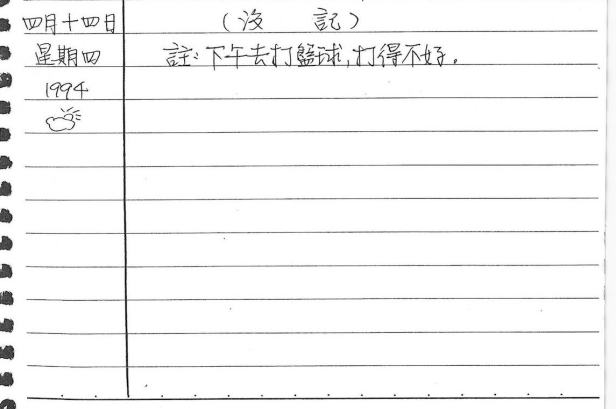 四月十四日
星期四
1994
（沒 記）
註:下午去打籃球,打得不好。